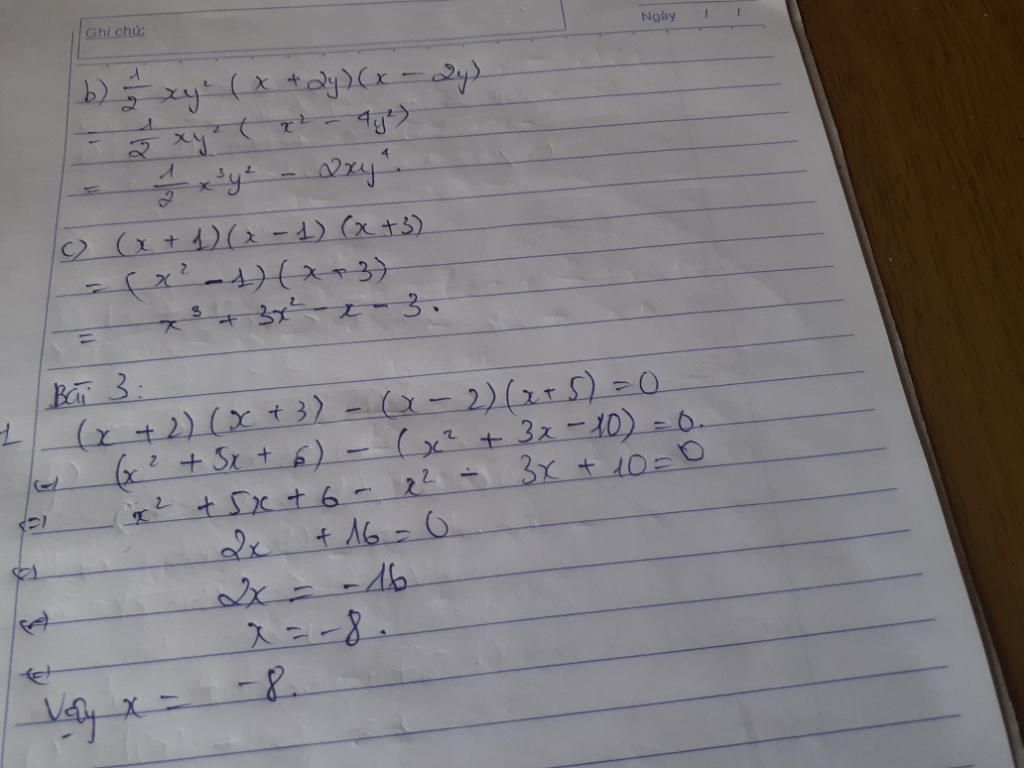 Ghi chú:
Ngày / /
b) 1/2 xy² (x + 2y)(x - 2y)
= 1/2 xy² (x² - 4y²)
= 1/2 x³y² - 2xy⁴.
c) (x + 1)(x - 1)(x + 3)
= (x² - 1)(x + 3)
= x³ + 3x² - x - 3.
Bài 3:
1 (x + 2)(x + 3) - (x - 2)(x + 5) = 0
(=) (x² + 5x + 6) - (x² + 3x - 10) = 0.
(=) x² + 5x + 6 - x² - 3x + 10 = 0
(=) 2x + 16 = 0
(=) 2x = -16
(=) x = -8.
Vậy x = -8.